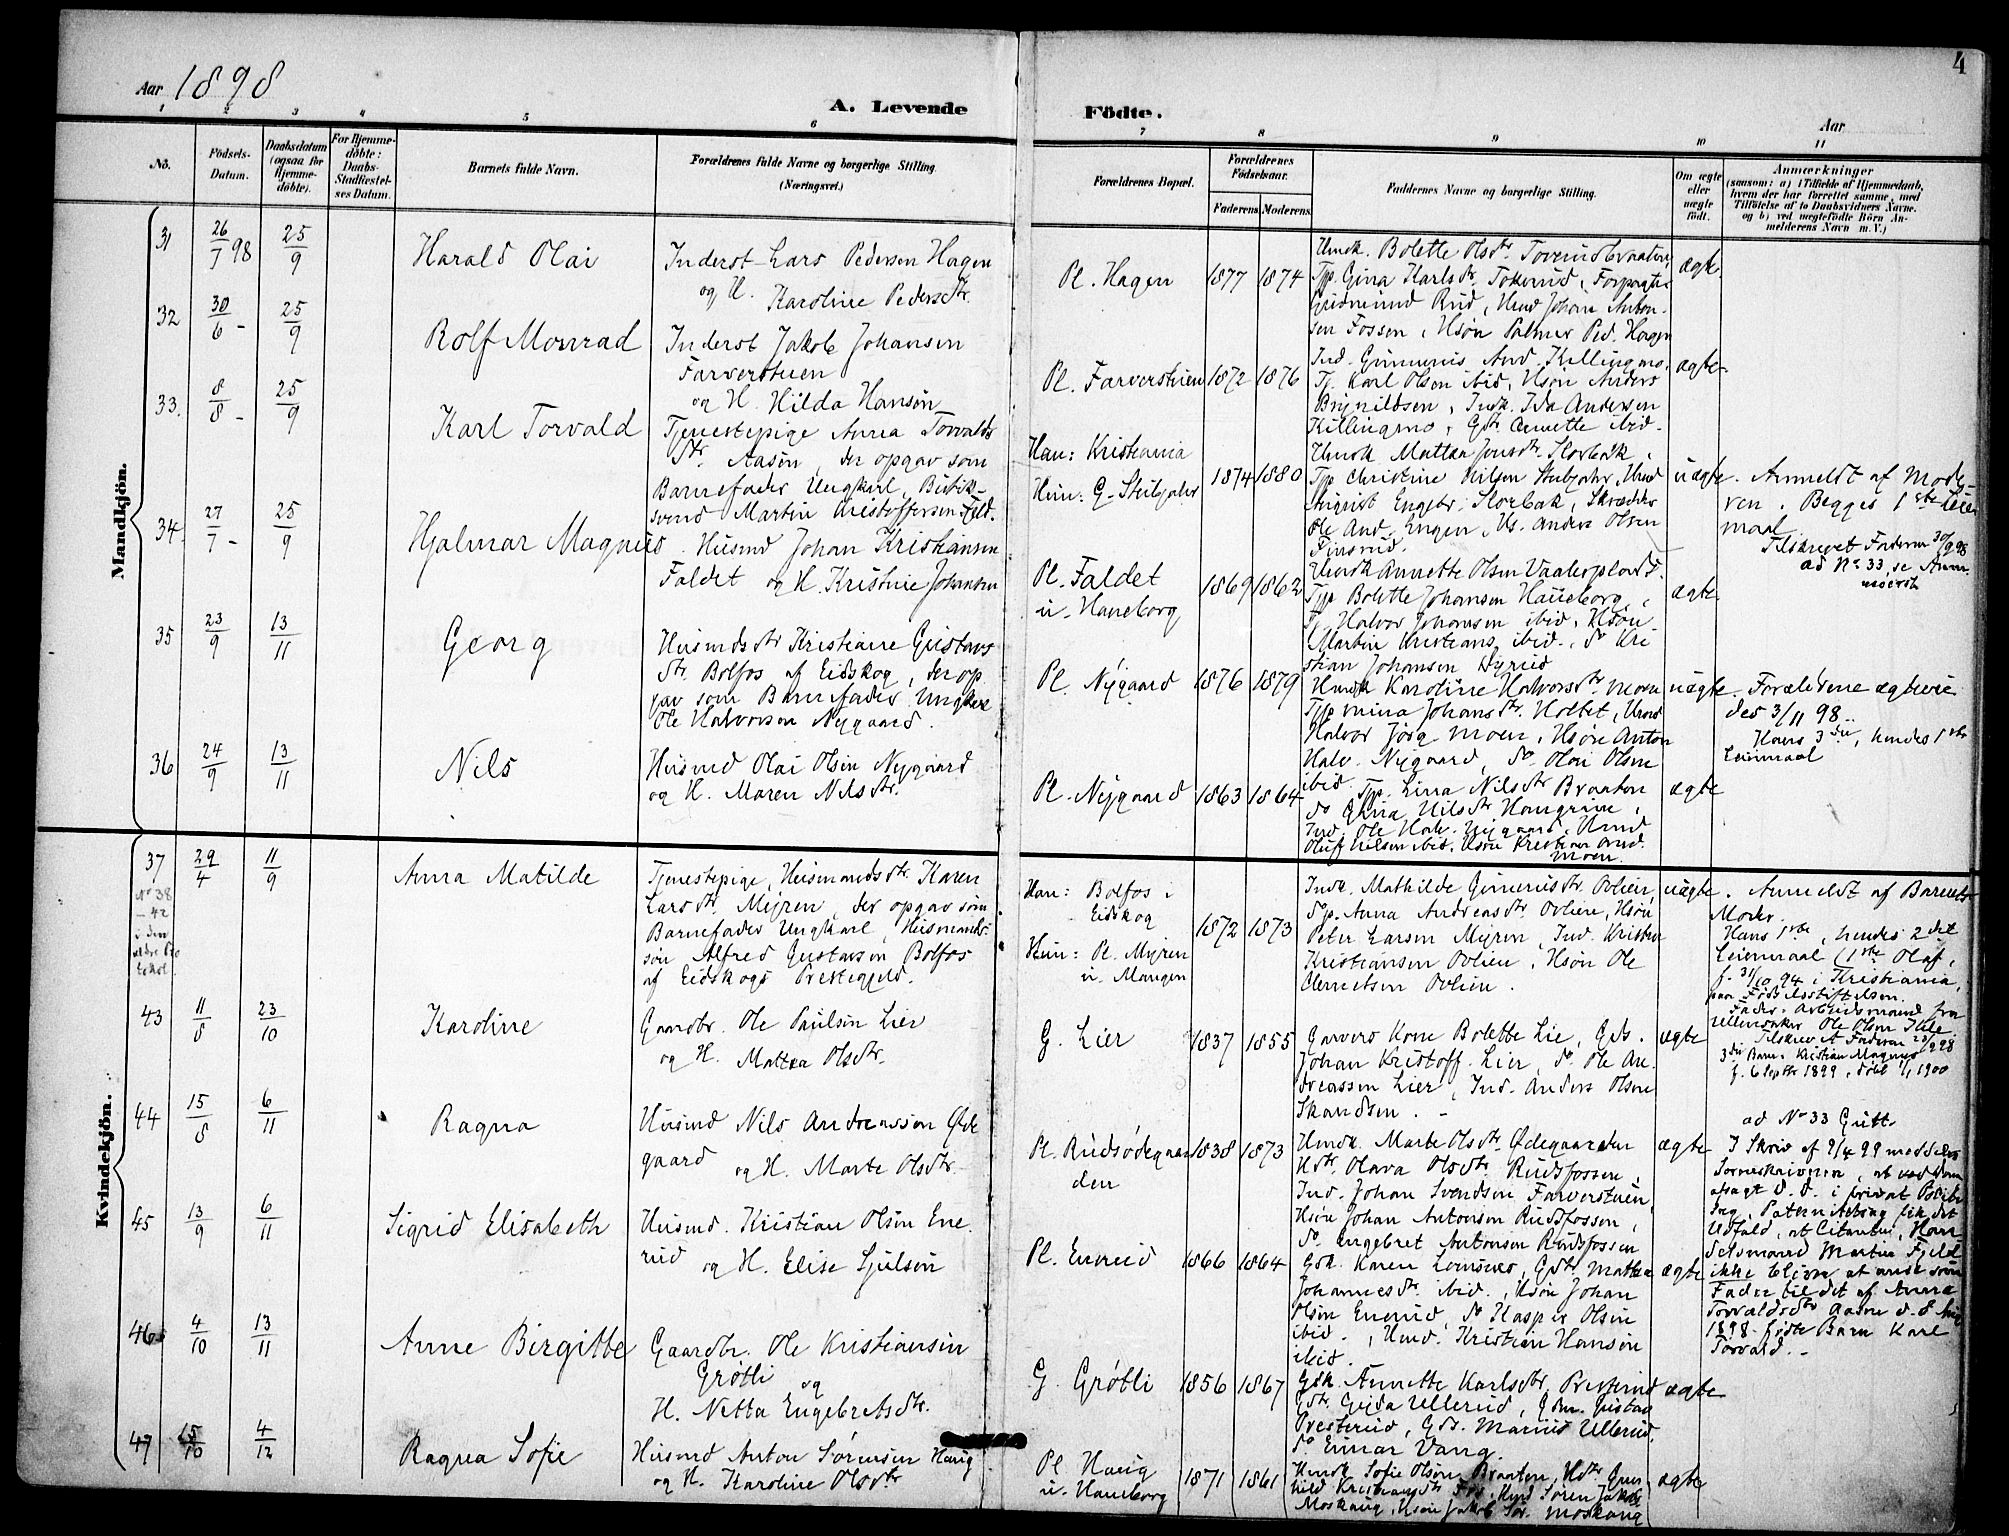 4
Aar 1898
A. Levende
Födte.
Aar
1 2 3 4 5 6 7 8 9 10 11
No.
Födsels-Datum.
Daabsdatum (ogsaa for Hjemme-döbte).
For Hjemme-döbte: Daabs-Stadfæstel-ses Datum.
Barnets fulde Navn.
Forældrenes fulde Navne og borgerlige Stilling.
(Næringsvei.)
Forældrenes Bopæl.
Forældrenes Födselsaar.
Faderens. Moderens.
Faddernes Navne og borgerlige Stilling.
Om ægte eller uægte födt.
Anmærkninger
(saasom: a) i Tilfælde af Hjemmedaab,
hvem der har forrettet samme, med
Tilföielse af to Daabsvidners Navne.
og b) ved uægtefödte Börn An-
melderens Navn m. V.)
Mandkjön.
31 26/7 98 25/9 Harald Olai
Inderst Lars Pedersen Hagen
og H. Karoline Pedersdtr.
Pl. Hagen 1877 1874
Tjp. Gina Karlsdtr. Tokerud,
Rud, Umd Johan Anton-
sen Fossen, Hsøn Palmer Ped. Hagen
ægte.
32 30/6 - 25/9 Rolf Monrad
Inderst Jakob Johansen
Farverstuen
og H. Hilda Hansen
Pl. Farverstuen 1872 1876
Tj. Karl Olsen ibid, Hsøn Anders
Brynildsen, Indk. Ida Andersen
Killingmo, Gdtr. Annette ibid.
ægte.
33. 8/8 - 25/9 Karl Torvald
Tjenestepige Anna Torvalds
dtr. Aasen, der opgav som
Barnefader Ungkarl, Butik-
svend Martin Kristoffersen Fjeld.
Han: Kristiania
Hun: G. Stubjahr 1874 1880
Hmdk Mathea Jensdtr. Slorbak,
Tjp Christine Nilsen Stubjahr, Umd
August Engebr. Slorbak, Skrædder
Ole And. Engen, Hs. Anders Olsen
Finsrud.
uægte. Anmeldt af Mode-
ren. Begges 1ste Leier-
maal
Tilskrevet Faderen 30/9 98
ad No. 33, se Anm.
nederst
34. 27/7 - 25/9 Hjalmar Magnus
Husmd Johan Kristiansen
Faldet og H. Kristine Johansen
Pl. Faldet
u. Haneborg 1869 1862
Hmdk Annette Olsen Vaalerplads.
Tjp Bolette Johansen Haneborg,
Tj. Halvor Johansen ibid, Hsøn
Martin Kristians. ibid., do Kri-
stian Johansen
ægte.
35 23/9 13/11 Georg
Husmdsdtr Kristiane Gustavs
dtr. Bolfos af Eidskog, der op
gav som Barnefader Ungkarl
Ole Halvorsen Nygaard.
Pl. Nygaard 1876 1879
Hmdk Karoline Halvorsdtr. Moen
Tjp Mina Johansdtr. Holtet, Umd
Halvor Jörg. Moen, Hsøn Anton
Halv. Nygaard, do Olai Olsen
ibid.
uægte. Forældrene ægtevie
des 3/11 98.
Hans 3die, hendes 1ste
Leiermaal
36 24/9 13/11 Nils
Husmd Olai Olsen Nygaard
og H. Maren Nilsdtr.
Pl. Nygaard 1863 1864
Tjp. Lina Nilsdtr Braaten
Ind. Ole Halv. Nygaard, Umd
Oluf Nilsen ibid. Hsøn Kristian And.
Moen.
ægte
Kvindekjön.
37 29/4 11/9 Anna Matilde
No 38
- 42
i den
ældre Pro
tokol
Tjenestepige, Husmandsdtr. Karen
Larsdtr. Myren, der opgav som
Barnefader Ungkarl, Husmands-
søn Alfred Gustavsen Bolfos
af Eidskogs Prestegjeld.
Han: Bolfos i
Eidskog
Hun: Pl. Myren
u. Mangen 1872 1873
Indk. Mathilde Gunerusdtr. Ovlien,
Tjp. Anna Andreasdtr Ovlien, Hsøn
Peter Larsen Myren, Ind. Kristen
Kristiansen Ovlien, Hsøn Ole
Clemetsen Ovlien.
uægte. Anmeldt af Barnets
Moder.
Hans 1ste, hendes 2det
Leiermaal (1ste Olaf,
f. 31/10 94 i Kristiania,
paa Födselsstiftelsen.
Fader: Arbeidsmand fra
Ullensaker Ole Olsen
Tilskrevet Faderen
3die Barn: Kristian Magnus
f. 6 Septbr 1899, döbt 1/1 1900
43 11/8 23/10 Karoline
Gaardbr. Ole Paulsen Lier
og H. Mathea Olsdtr.
G. Lier 1837 1855
Garvers Kone Bolette Lie, Gds.
Johan Kristoff. Lier, do Ole An-
dreassen Lier, Ind. Anders Olsen
Skandsen. -
ægte
44 15/8 6/11 Ragna
Husmd Nils Andreassen Øde
gaard og H. Marte Olsdtr.
Pl. Rudsødegaar
den 1838 1873
Hmdk. Marte Olsdtr. Ødegaarden
Hdtr. Olava Olsdtr. Rudsfossen,
Ind. Johan Svendsen Farverstuen,
Hsøn Johan Antonsen Rudsfossen,
do Engebret Antonsen Rudsfossen
ægte
ad No 33 Gutt.
I Skriv af 9/4 99 meddeler
Sorenskriveren, at ved Dom
afsagt d. d. i privat Politi
sag, Paternitetssag fik det
Udfald, at Citanten, Han-
delsmand Martin Fjeld
ikke bliver at anse som
Fader til det af Anna
Torvaldsdtr Aasen d. 8 Aug
1898 fødte Barn Karl
Torvald. -
45 13/9 6/11 Sigrid Elisabeth
Husmd. Kristian Olsen Ene-
rud og H. Elise Sjulsen
Pl. Enerud 1866 1864
Gdk. Karen Lomsnes, Gdtr. Mathea
Johannesdtr. ibid., Hsøn Johan
Olsen Enerud, do Kasper Olsen
ibid., Umd. Kristian Hansen
ibid.
ægte
46 4/10 13/11 Anne Birgitte
Gaardbr. Ole Kristiansen
Grøtli og
H. Netta Engebretsdtr.
G. Grøtli 1856 1867
Gdk. Annette Karlsdtr. Presterud
Gdtr. Gusta Ullerud, Gdm. Gustav
Presterud, Gds. Marius Ullerud.
do Einar Vang.
ægte
47 15/10 4/12 Ragna Sofie
Husmd Anton Sørensen Haug
og H. Karoline Olsdtr
Pl. Haug
u. Haneborg 1871 1861
Hmdk Sofie Olsen Braaten, Hdtr Gun-
hild Kristiansdtr Fos, Umd Søren Jakobs
Moskaug, Hsøn Jakob Sør. Moskaug
ægte